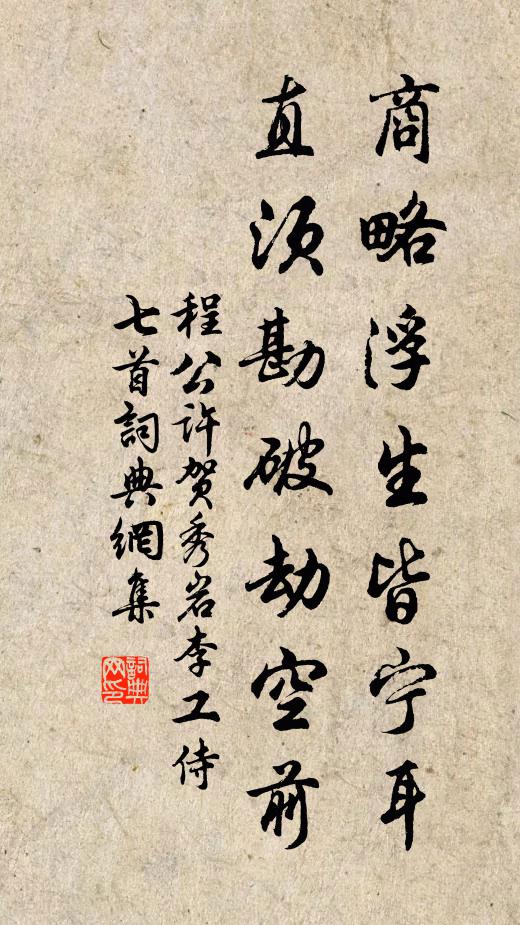 商略浮生皆宁耳
直须勘破劫空前
程公许贺秀岩李工侍
七首詞典網集
詞典网印